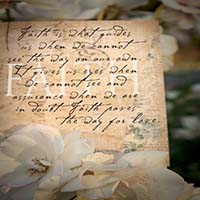 Faith is what guides
us when we cannot
see the day on our own.
It gives us eyes when
we cannot see and
assurance when we are
in doubt. Faith paves
the way for love.
FAITH